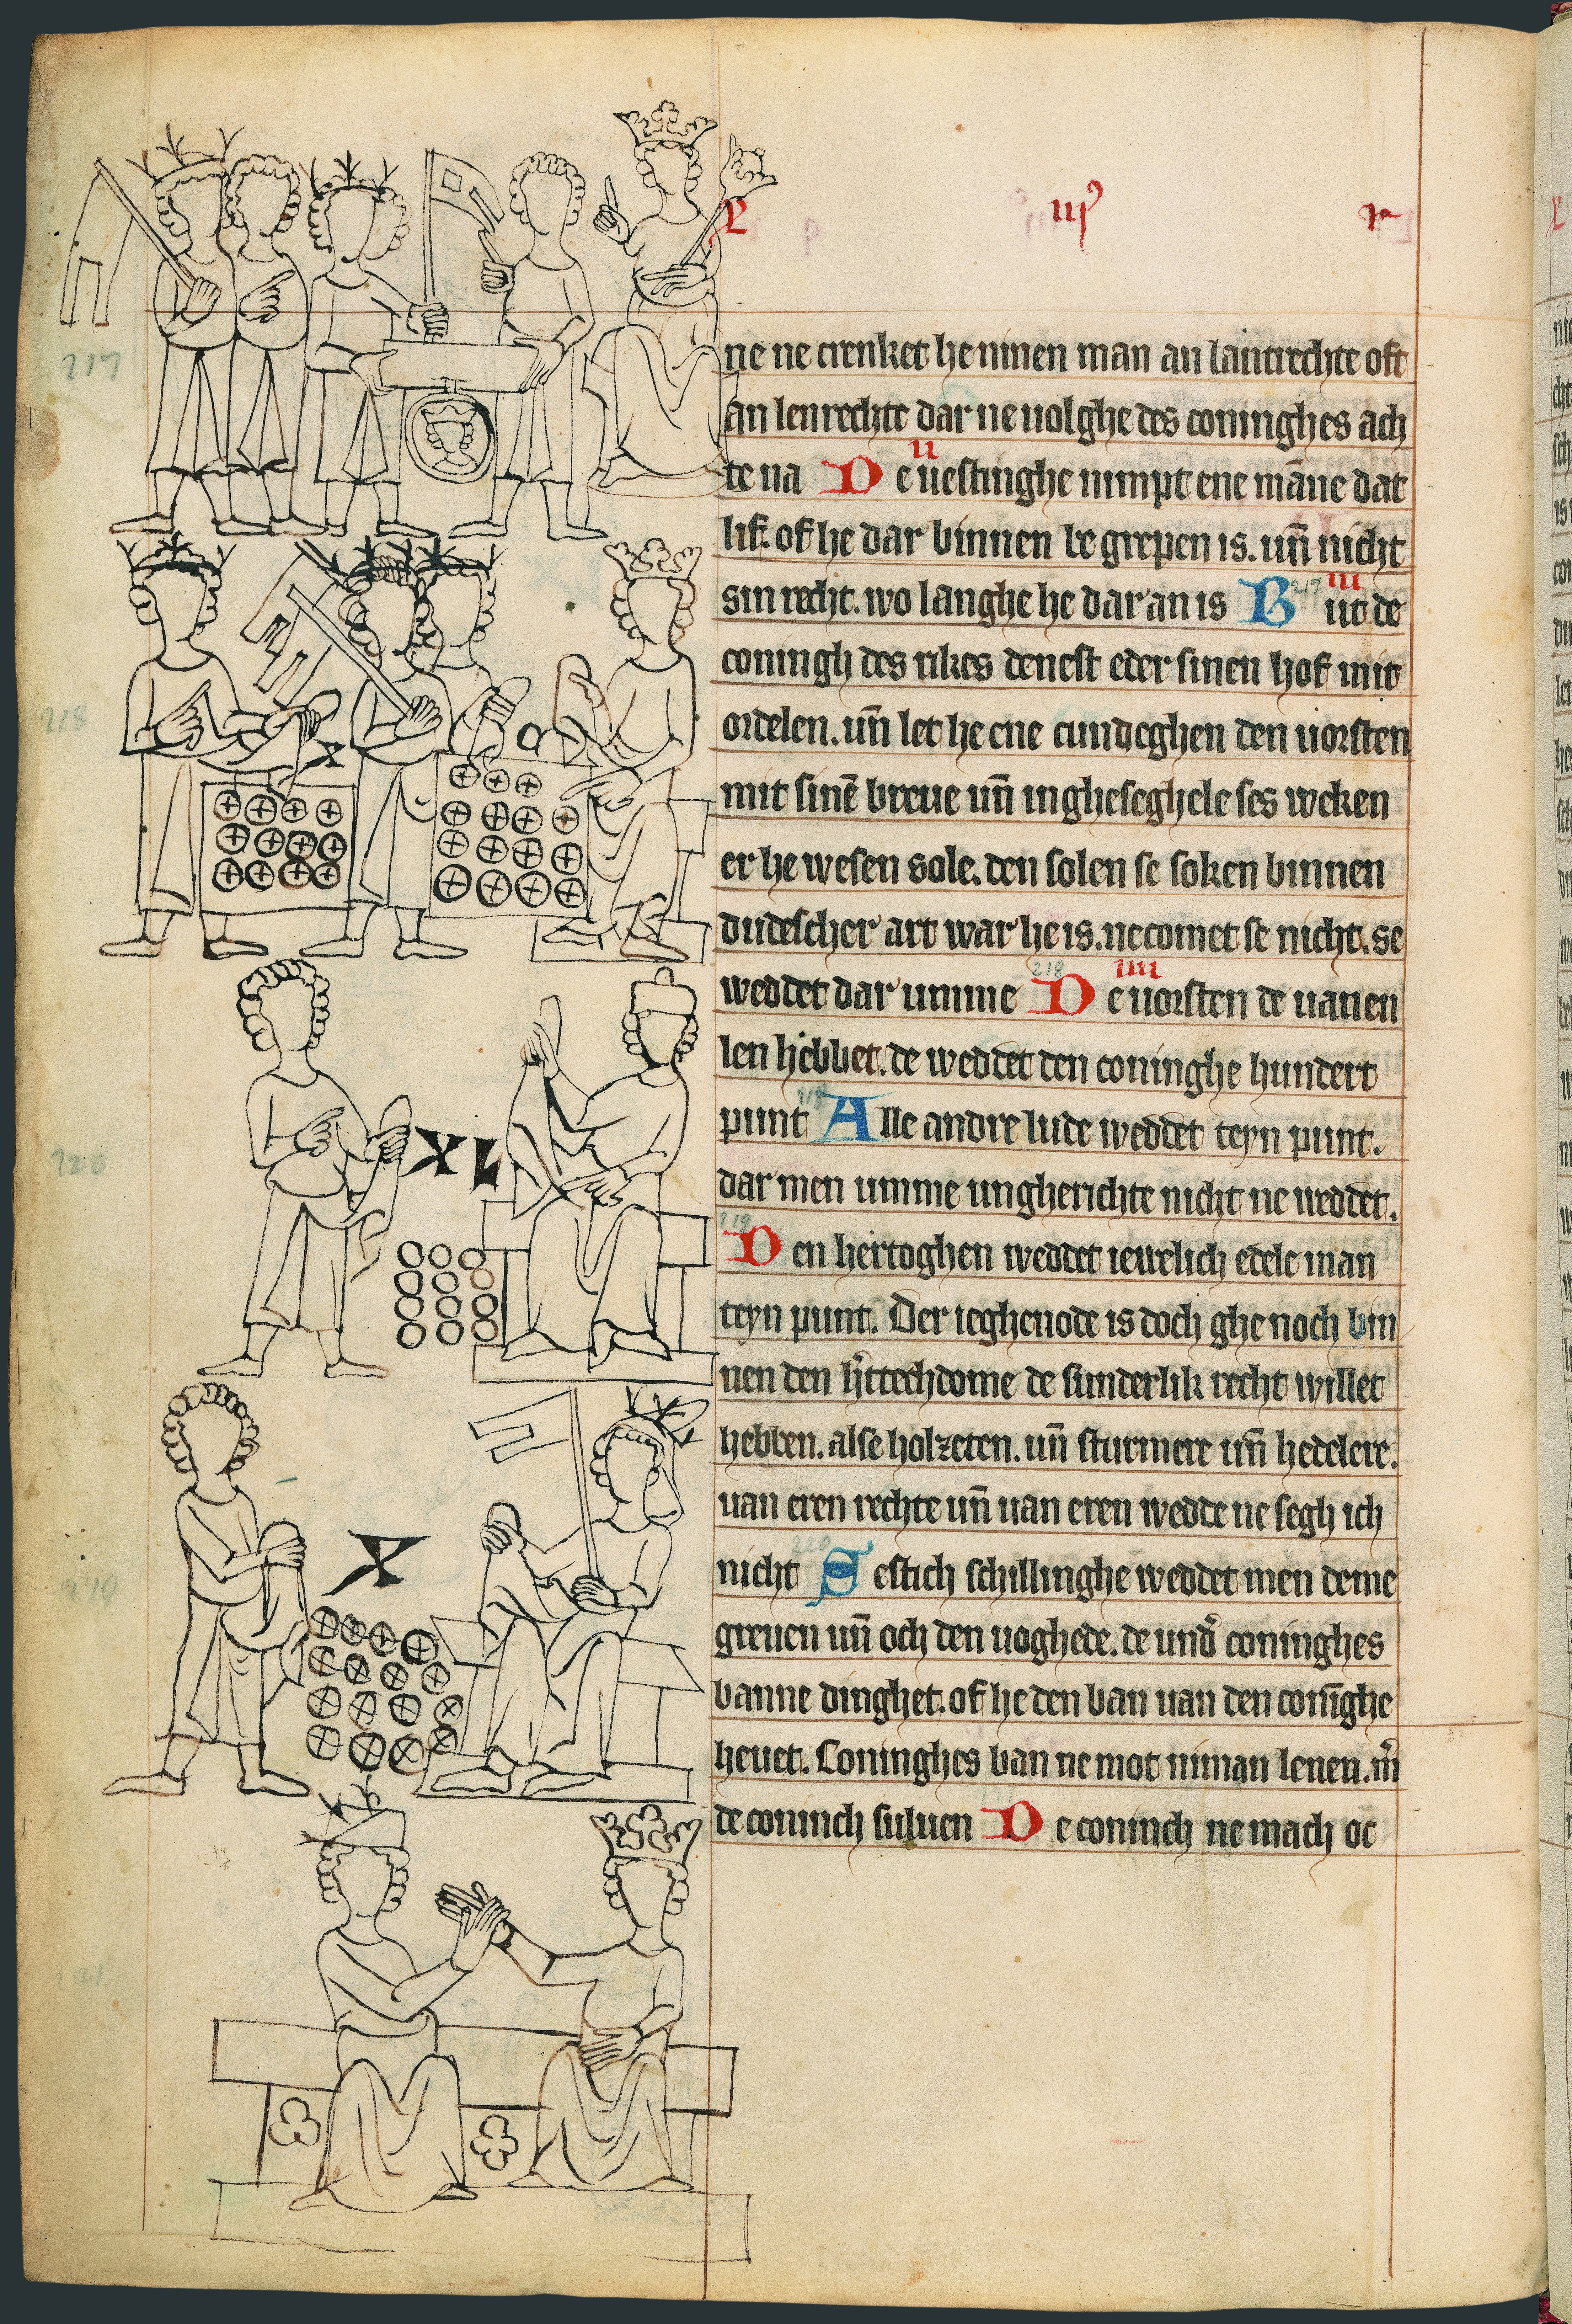 L iij r
ne ne crenket he ninen man an lantrechte oft
an lenrechte dar ne uolghe des coninghes ach
te na De uestinghe nimpt ene mãne dat
ij
lif. of he dar binnen be grepen is. uñ nicht
sin recht. wo langhe he dar an is But de
217 iij
coningh des rikes denest eder sinen hof mit
ordelen. uñ let he ene cundeghen den uorsten
mit sinẽ breue uñ ingheseghele ses weken
er he wesen sole. den solen se soken binnen
dudescher art war he is. ne comet se nicht. se
weddet dar umme De uorsten de uanen
218 iiij
len hebbet. de weddet den coninghe hundert
punt Alle andre lude weddet teyn punt.
dar men umme ungherichte nicht ne weddet.
219
Den hertoghen weddet iewelich edele man
teyn punt. Der ieghenode is doch ghe noch bin
nen den h'ttechdome de sunderlik recht willet
hebben. alse holzeten. uñ sturmere uñ hedelere.
uan eren rechte uñ uan eren wedde ne segh ich
nicht Sestich schillinghe weddet men deme
220
greuen uñ och den uoghede. de und' coninghes
banne dinghet. of he den ban uan den conĩghe
heuet. Coninghes ban ne mot niman lenen. m̃
de coninch suluen De coninch ne mach oc
217
218
X
C
220
XL
X